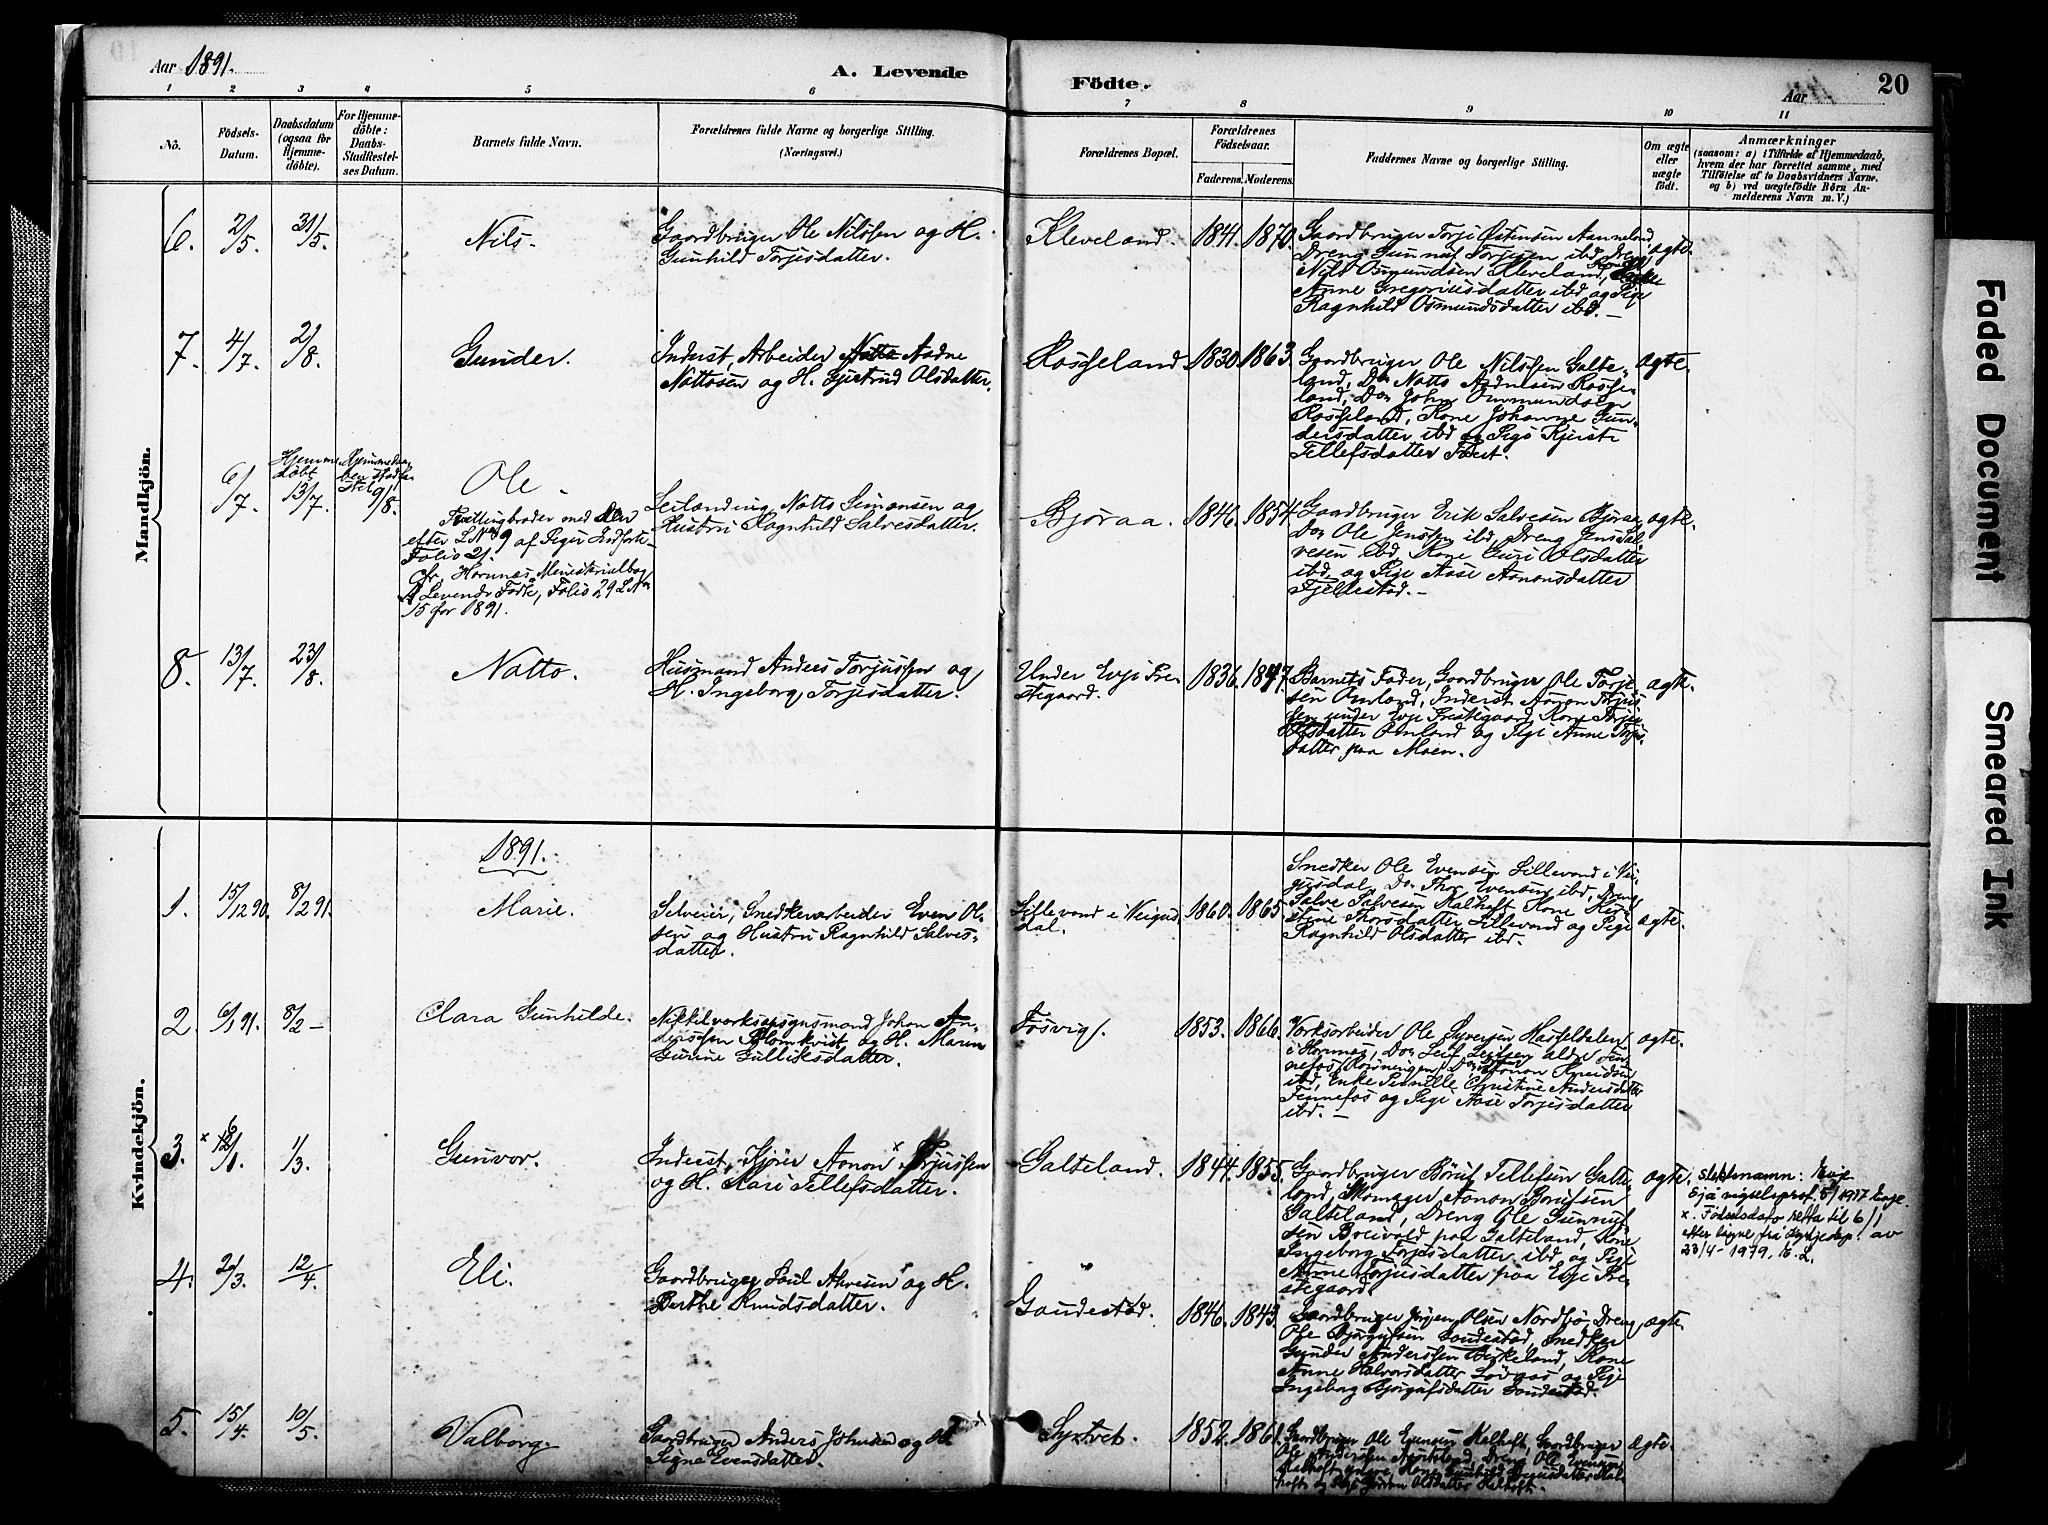 Aar 1891.
A. Levende
Födte.
Aar
20
1 2 3 4 5 6 7 8 9 10 11
No.
Födsels-
Datum.
Daabsdatum
(ogsaa for
Hjemme-
döbte).
For Hjemme-
döbte:
Daabs-
Stadfæstel-
ses Datum.
Barnets fulde Navn.
Forældrenes fulde Navne og borgerlige Stilling.
(Næringsvei.)
Forældrenes Bopæl.
Forældrenes
Födselsaar.
Faderens. Moderens.
Faddernes Navne og borgerlige Stilling.
Om ægte
eller
uægte
födt.
Anmærkninger
(saasom: a) i Tilfælde af Hjemmedaab,
hvem der har forrettet samme, med
Tilföielse af to Daabsvidners Navne.
og b) ved uægtefödte Börn An-
melderens Navn m. V.)
Mandkjön.
6. 2/5. 31/5. Nils.
Gaardbruger Ole Nilssen og H.
Gunhild Torjesdatter.
Kleveland. 1841. 1870.
Gaardbruger Torje Østensen Aanneland
Dreng Gunnuf Torjesen ibd, Dreng
Nils Osmundsen Kleveland, Kone
Anne Gregoriusdatter ibd og Pige
Ragnhild Osmundsdatter ibd.
ægte.
7. 4/7. 2/8. Gunder.
Inderst, Arbeider Aadne
Nottosen og H. Gjertrud Olsdatter.
Rosseland 1830. 1863.
Gaardbruger Ole Nilssen Galte-
land, Do Notto Aadnesen Rosse-
land, Do John Ommundsen
Rosseland, Kone Johanne Gun-
dersdatter ibd og Pige Kjersti
Tellefsdatter
ægte.
6/7. Hjemme-
döbt
13/7. 9/8.
Ole
Tvillingbroder med den
efter L No 9 af Piger indførte
Folio 21.
cfr. Hornnes Ministerialbog
A Levende Födte, Folio 29 L No
15 for 1891.
Leilænding Notto Simonsen og
Hustru Ragnhild Salvesdatter.
Bjøraa. 1846. 1854.
Gaardbruger Erik Salvesen Bjøraa,
Do Ole Jenssen ibd, Dreng Jens Sal-
vesen ibd, Kone Guri Olsdatter
ibd, og Pige Aase Aanonsdatter
Fjellestad.
ægte.
8. 13/7. 23/8. Notto.
Husmand Anders Torjussen og
H. Ingeborg Torjesdatter.
Under Evje Præ-
stegaard. 1836. 1847.
Barnets Fader, Gaardbruger Ole Torje-
sen Omland, Inderst Aanon Torjus-
sen under Evje Præstegaard, Kone Torje
Olsdatter Omland og Pige Anne Torjus-
datter paa Moen.
ægte.
Kvindekjön.
1891.
1. 15/12 90. 8/2 91. Marie.
Selveier, Snedkerarbeider Even Ol-
sen og Hustru Ragnhild Salves-
datter.
Lillevand i Veigus-
dal. 1860. 1865.
Snedker Ole Evensen Lillevand i Vei-
gusdal, Do Thor Evensen ibd, Dreng
Salve Salvesen Kalhoft, Kone Kir-
stene Thorsdatter Lillevand og Pige
Ragnhild Olsdatter ibd.
ægte.
2. 6/1 91. 8/2 – Clara Gunhilde.
Nikkelverksopsynsmand Johan An-
derssen Blomkvist og H. Maren
Gurine Gulliksdatter.
Fosvig. 1853. 1866.
Værksarbeider Ole Syversen Hasseldalen
i Hornnes, Do Leif Leifsen ældre Fen-
nefos, Do Aanon Knudsen
ibd, Enke Pernille Christine Andersdatter
Fennefos og Pige Aase Torjesdatter
ibd.
ægte.
3. x 6/1. 1/3. Gunvor.
Inderst, Kjører Aanon x Torjussen
og H. Kari Tellefsdatter.
Galteland. 1844. 1855.
Gaardbruger Børuf Tellefsen Galte-
land, Skomager Aanon Børufsen
Galteland, Dreng Ole Gunnuf-
sen Breivold paa Galteland, Kone
Ingeborg Torjesdatter ibd, og Pige
Anne Torjusdatter paa Evje Præ-
stegaard.
ægte.
slektsnamn: Evje
Sjå vigselsprot. 5/1917 Evje.
x. Fødselsdato retta til 6/1
etter brev frå Kyrkjedep. av
23/4-1979.
4. 20/3. 12/4. Eli.
Gaardbruger Paul Alvesen og H.
Berthe Knudsdatter.
Gaudestad. 1846. 1843.
Gaardbruger Jørgen Olsen Nordbø, Dreng
Ole Bjørgufsen Gaudestad, Snedker
Gunder Anderssen Birkeland, Kone
Anne Halvorsdatter Løvaas og Pige
Ingeborg Bjørgufsdatter Gaudestad.
ægte.
5. 15/4. 10/5. Valborg.
Gaardbruger Anders Johnsen og H.
Signe Evensdatter.
Syrtvet. 1852. 1861.
Gaardbruger Ole Evensen Kalhoft, Gaardbruger
Ole Anderssen Dreng Ole Evensen
Kalhoft
Olsdatter Kalhoft.
ægte.
Faded Document
Smeared Ink